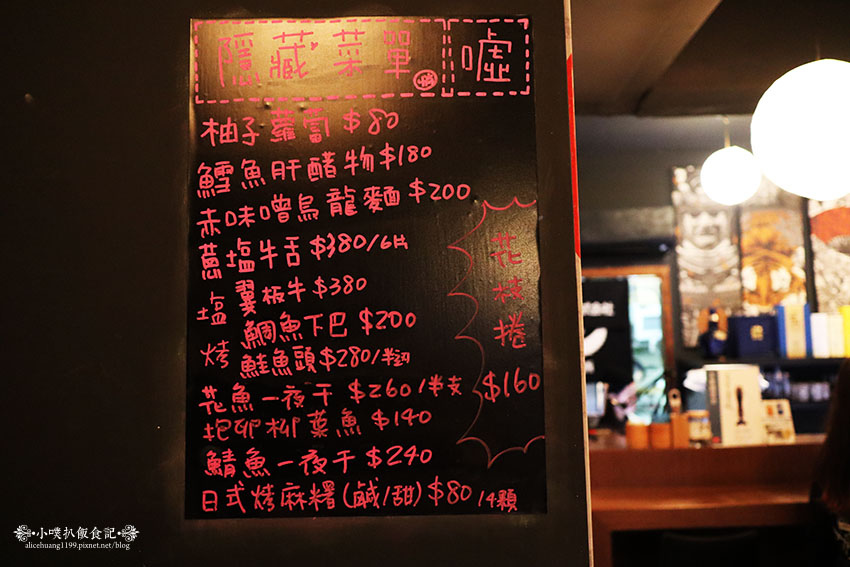 隱藏菜單 噓
柚子蘿蔔 $80
鱈魚肝醋物 $180
赤味噌烏龍麵 $200
蔥塩牛舌 $380/6片
塩 翼板牛 $380
烤 鯛魚下巴 $200
鮭魚頭 $280/半切
花魚一夜干 $260/半支
抱卵柳葉魚 $140
鯖魚一夜干 $240
日式烤麻糬(鹹/甜) $80/4顆
花枝捲
$160
小噗扒飯食記
alicehuang1199.pixnet.net/blog